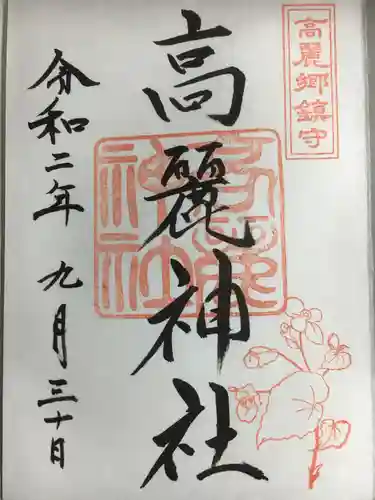 高麗郷鎮守
高麗神社
令和二年 九月三十日
高麗神社